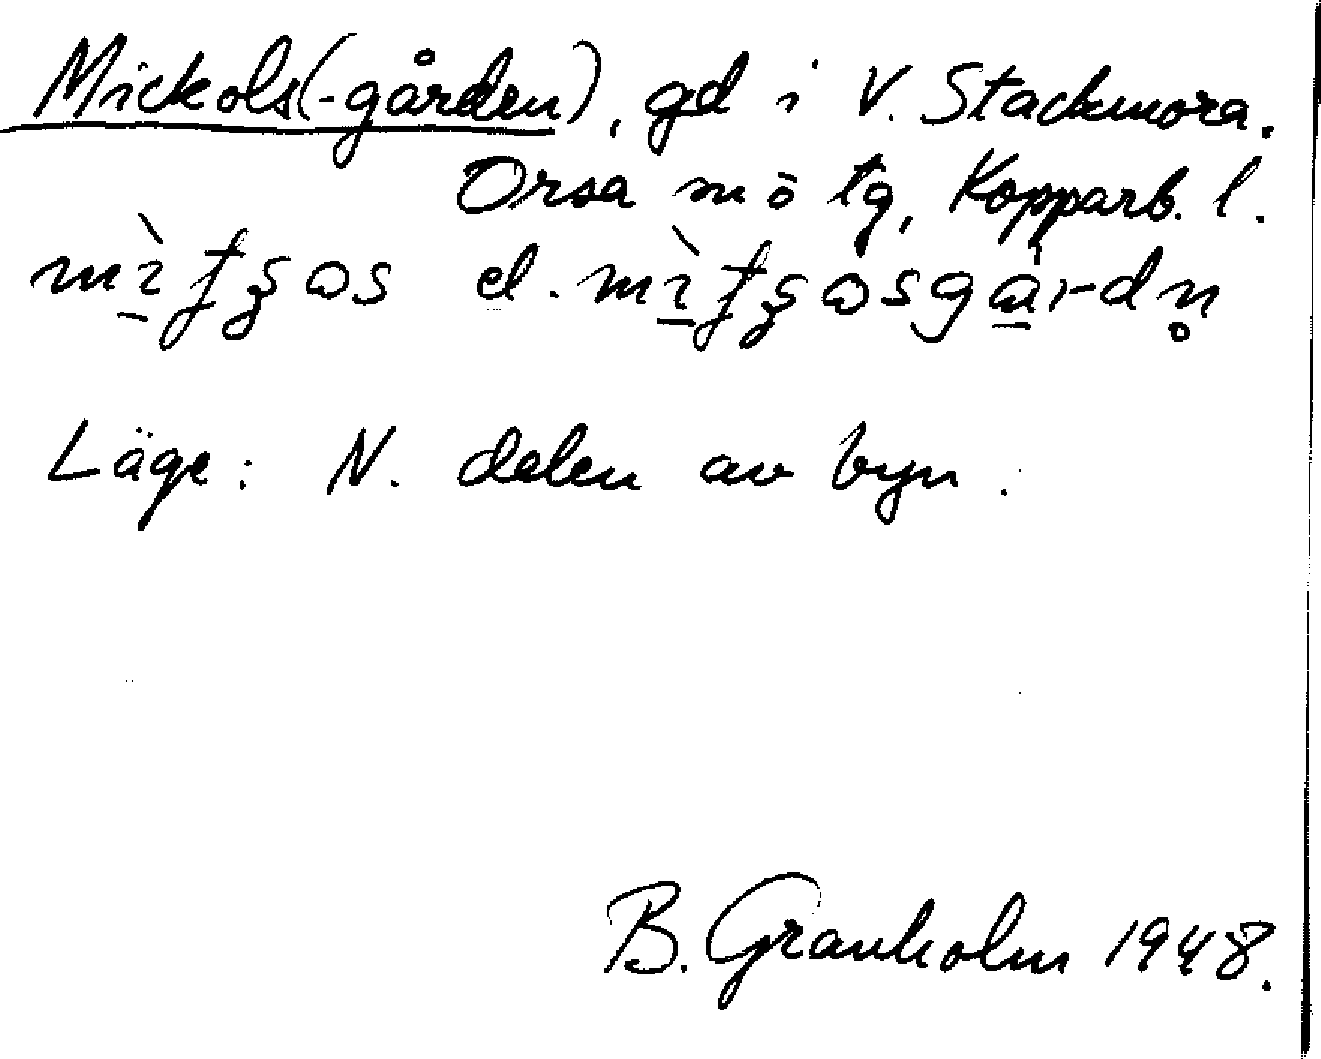 Mickols(-gården), gd i V. Stackmora.
Orsa sn o tg, Kopparb. l.
el.
Läge: N. delen av byn.
B. Granholm 1948.